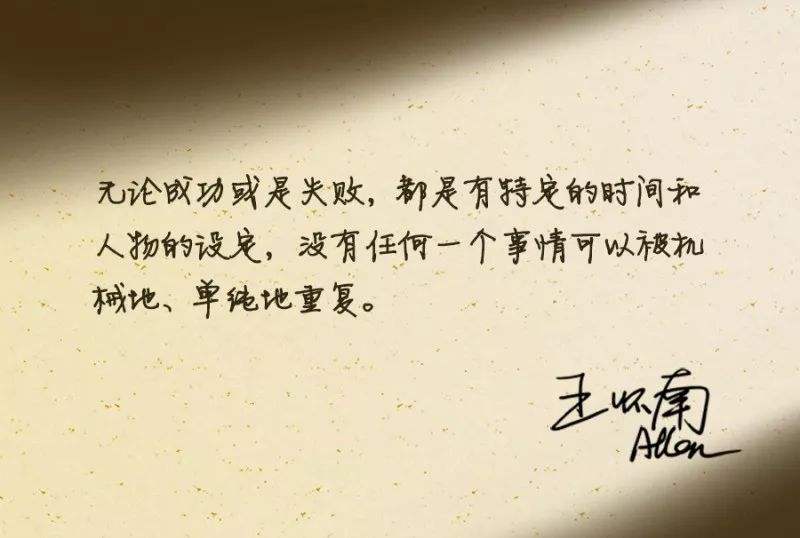 无论成功或是失败，都是有特定的时间和
人物的设定，没有任何一个事情可以被机
械地、单纯地重复。
王怀南
Allen